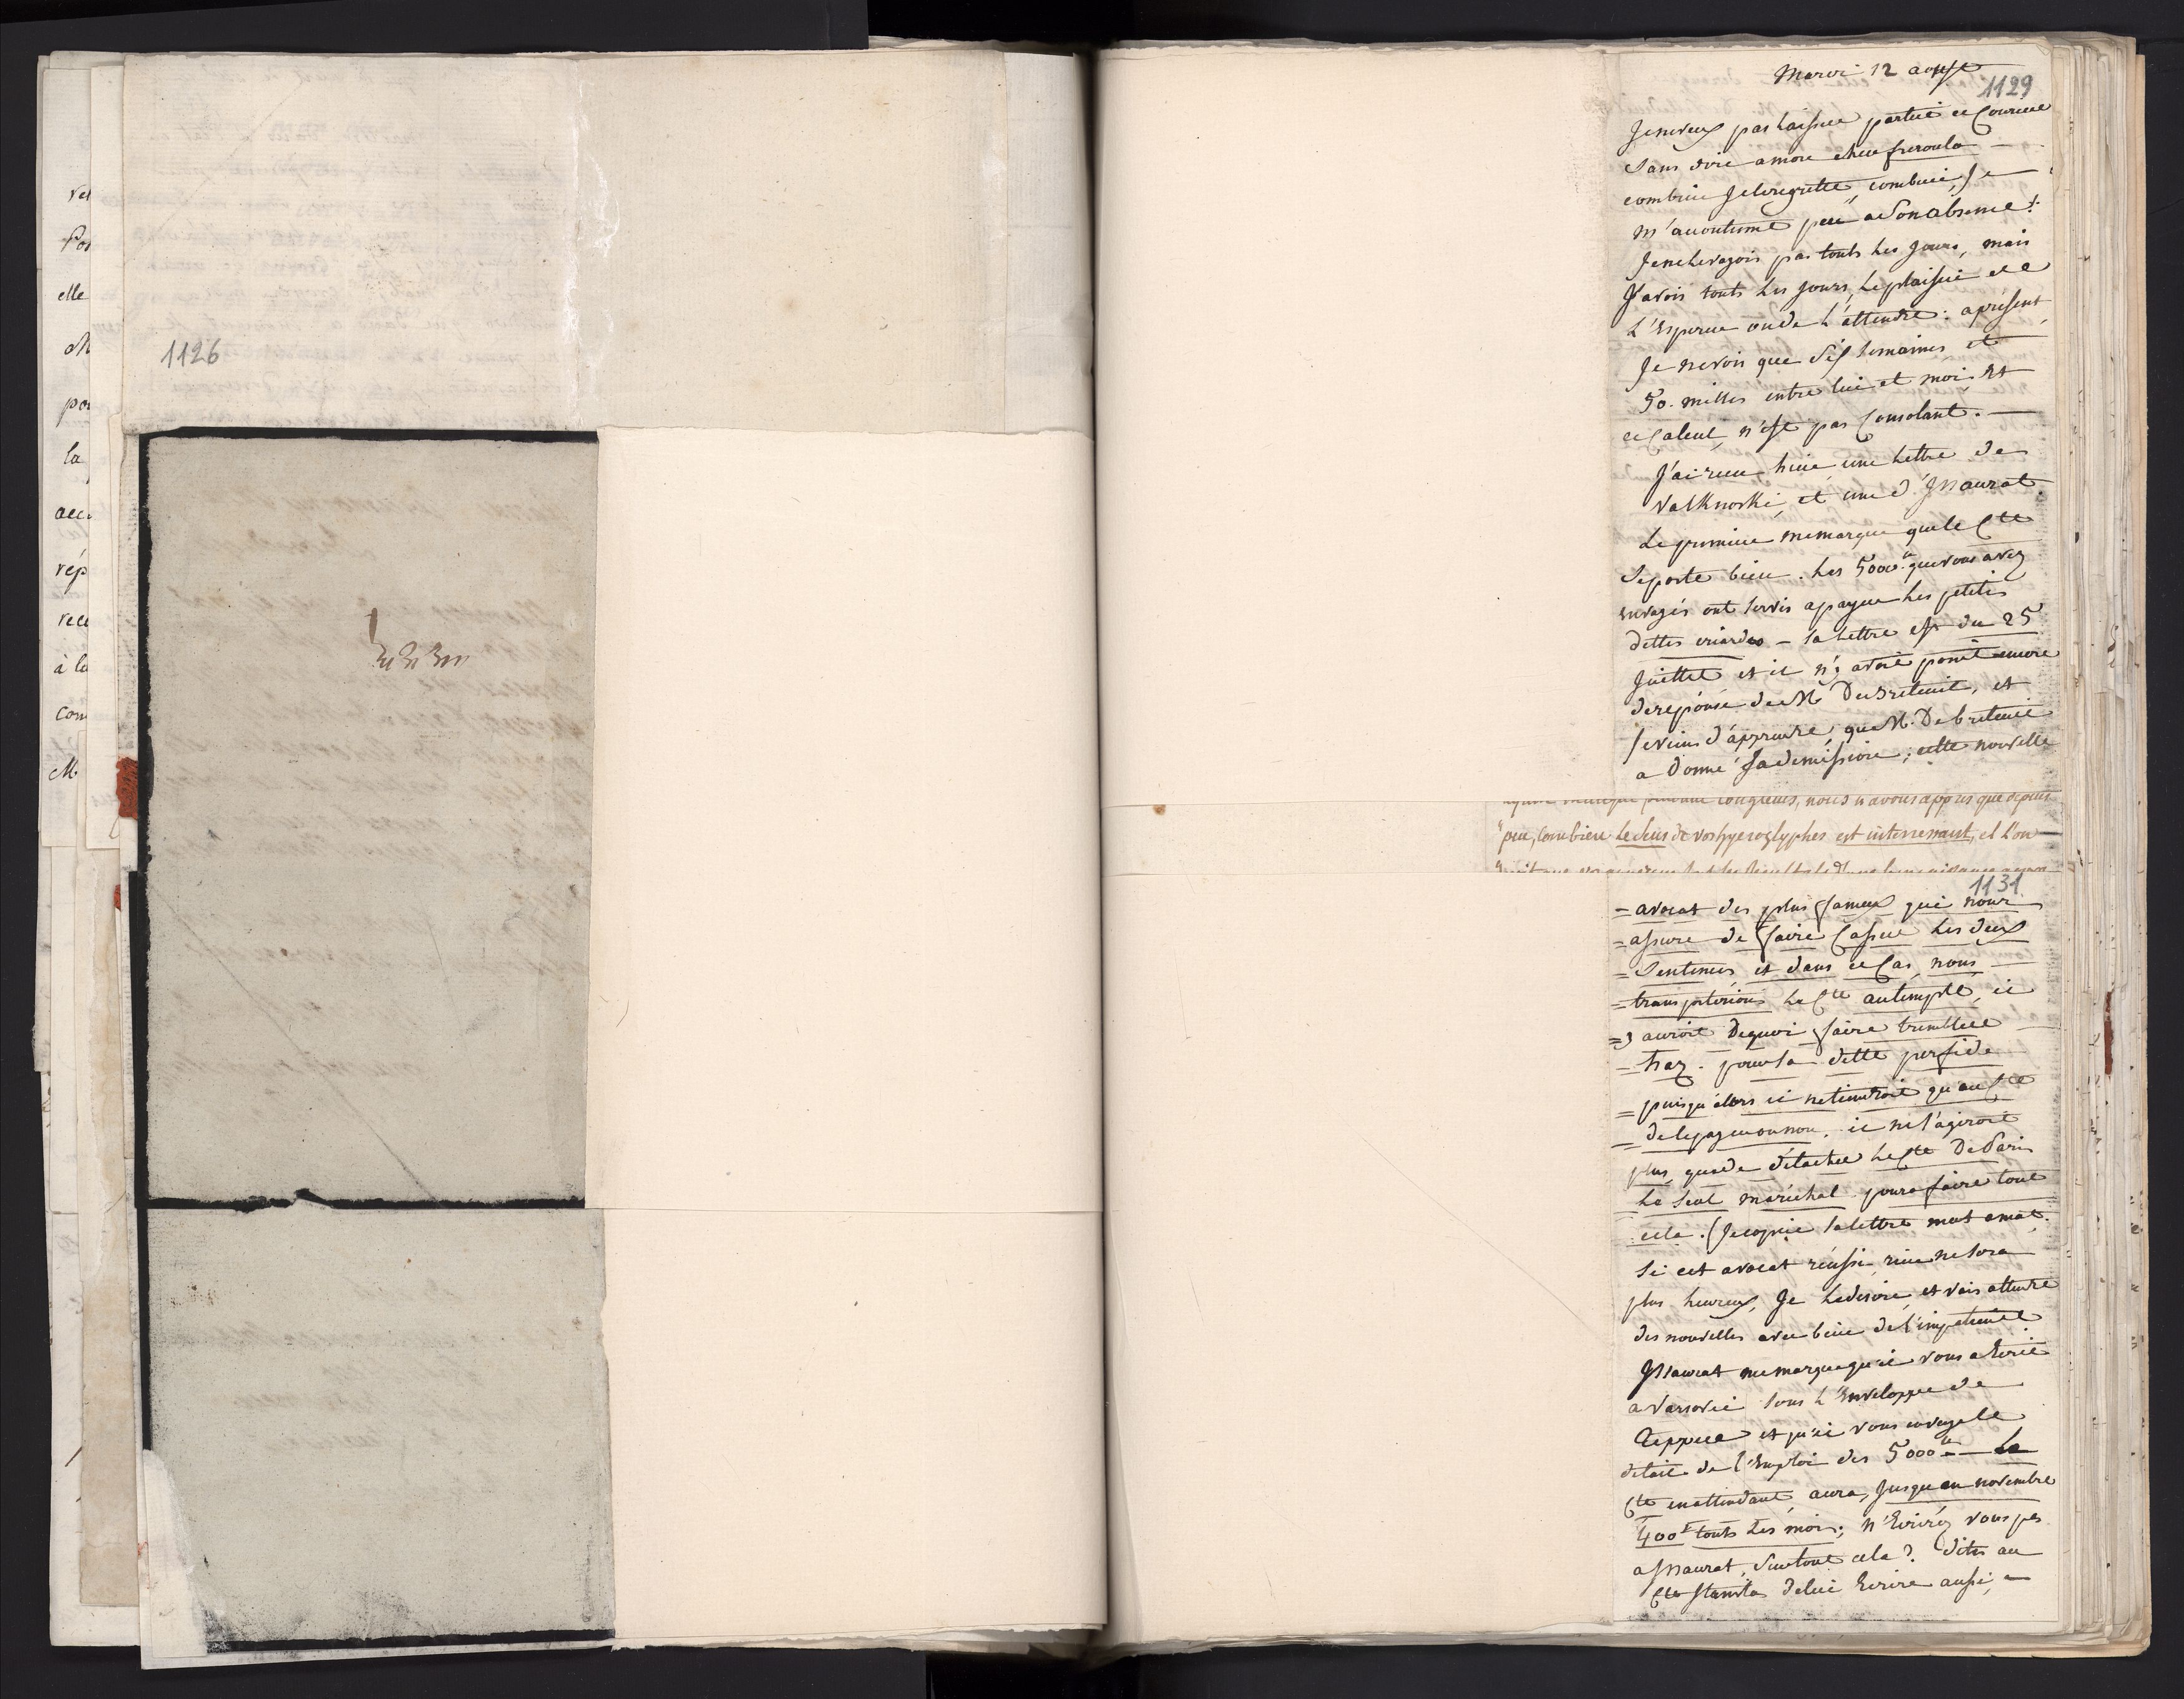 ver
Pos
elle
M
pou
la
acc
rép
rece
à la
com
M
1126
Mardi 12 aoust
1129
Je neveux pas Laisser partir ce Courier
Sans dire a mon cher freroula —
combien Je leregrette, combien, Je
m'accoutume peu a Son absence!
Jenelevoyois pas touts Les Jours, mais
J'avois touts Les Jours, Le plaisir de
L'Esperer ou de L'attendre: aprésent
Je nevois que Six Semaines et
50. milles entre lui et moi, Et
ce Calcul, n'est pas Consolant. —
J'ai reçu hier une Lettre de
Valknoski, et une d'Maurat.
Le premier memarque que le Cte
Se porte bien. Les 5000 # que vous avez
envoyés ont servis apayer Les petites
dettes criardes — Sa Lettre est du 25
Juillet et il n'y avoit point encore
de reponse de Mr De Breteuil, et
Je viens d'apprendre que M. De breteuil
a donné Sa demission; cette nouvelle
longueurs, nous n'avons appris que depuis
"peu, combien le sens de vos hyeroglyphes est interressant, et l'on —
1131
= avocat des plus fameux qui nous
= assure de faire Casser Les deux
= Sentences, et dans ce Cas, nous —
= transporterions Le Cte autemple, il
= y auroit Dequoi faire trembler
= haz. pour sa dette perfide
= puisqu'alors il netiendroit qu'au Cte
= de lepayer ou non, il ne s'agiroit
plus, que de détacher Le Cte De Paris
Le Seul maréchal poura faire tout
cela. (Je copie Salettre mot amot.
Si cet avocat réussi rien ne sera
plus heureux, Je Ledesire, et vais attendre
des nouvelles avec bien de l'impatience
Maurat me marque qu'il vous a Ecrit
a Varsovie Sous L'Enveloppe de
Tepper et qu'il vous envoye le
détail de l'Emploi des 5000 # — Le
Cte en attendant aura, Jusqu'en novembre
400 # touts Les mois; n'Ecrirés vous pas
a Maurat, Sur tout cela? dites au
Cte Stanislas de lui Ecrire aussi, —